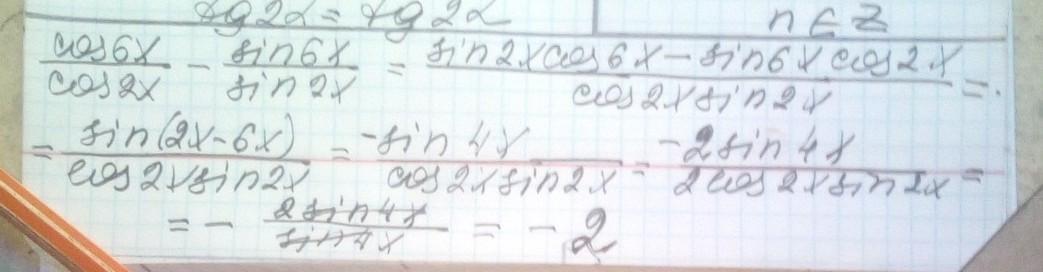 tg2α = tg2α
n ∈ Z
cos6x/cos2x - sin6x/sin2x = (sin2xcos6x - sin6x cos2x)/(cos2x sin2x) =
= sin(2x-6x)/(cos2xsin2x) = -sin 4x/(cos2xsin2x) = -2sin4x/(2cos2xsin2x) =
= - 2sin4x/sin4x = -2